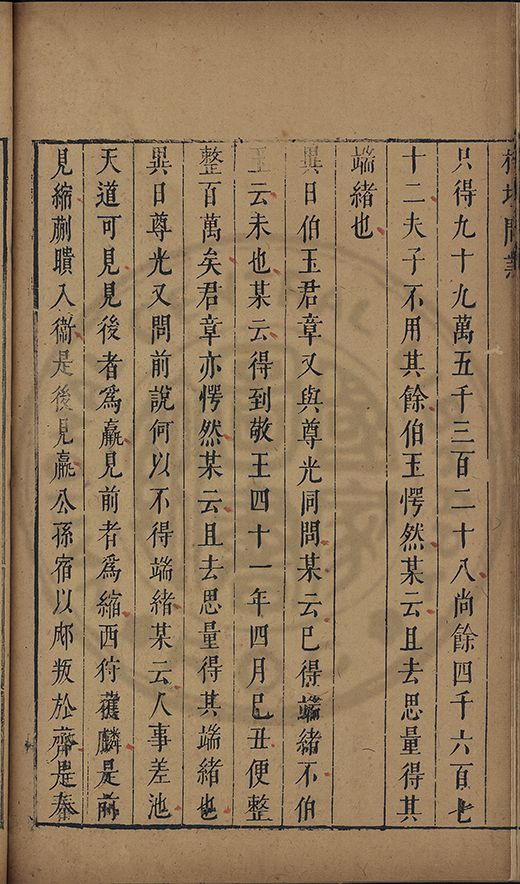 榕壇問業
只得九十九萬五千三百二十八尚餘四千六百七
十二夫子不用其餘伯玉愕然某云且去思量得其
端緒也
異日伯玉君章又與尊光同問某云已得端緒不伯
玉云未也某云得到敬王四十一年四月己丑便整
整百萬矣君章亦愕然某云且去思量得其端緒也
異日尊光又問前說何以不得端緒某云人事差池
天道可見見後者爲贏見前者爲縮西狩獲麟是前
見縮蒯聵入衞是後見贏公孫宿以郕叛於齊是秦